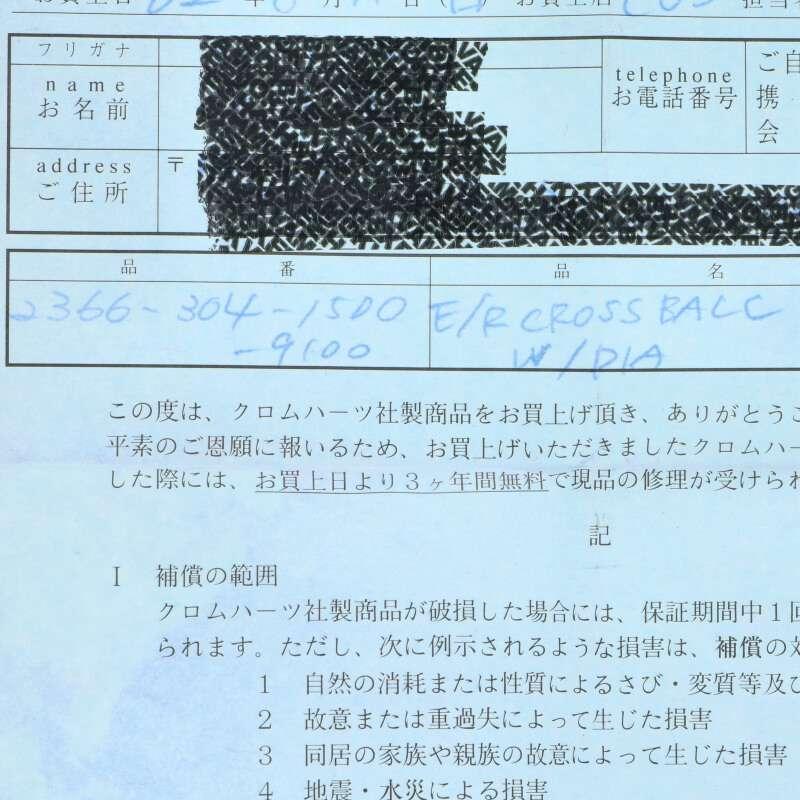 フリガナ
name
お名前
telephone
お電話番号
ご自
携
会
address
ご住所
〒
品番
品名
2366-304-1500
-9100
E/R CROSS BALL C
W/DIA
この度は、クロムハーツ社製商品をお買上げ頂き、ありがとうご
平素のご恩顧に報いるため、お買上げいただきましたクロムハー
した際には、お買上日より3ヶ年間無料で現品の修理が受けられ
記
I 補償の範囲
クロムハーツ社製商品が破損した場合には、保証期間中1回
られます。ただし、次に例示されるような損害は、補償の対
1 自然の消耗または性質によるさび・変質等及び
2 故意または重過失によって生じた損害
3 同居の家族や親族の故意によって生じた損害
4 地震・水災による損害